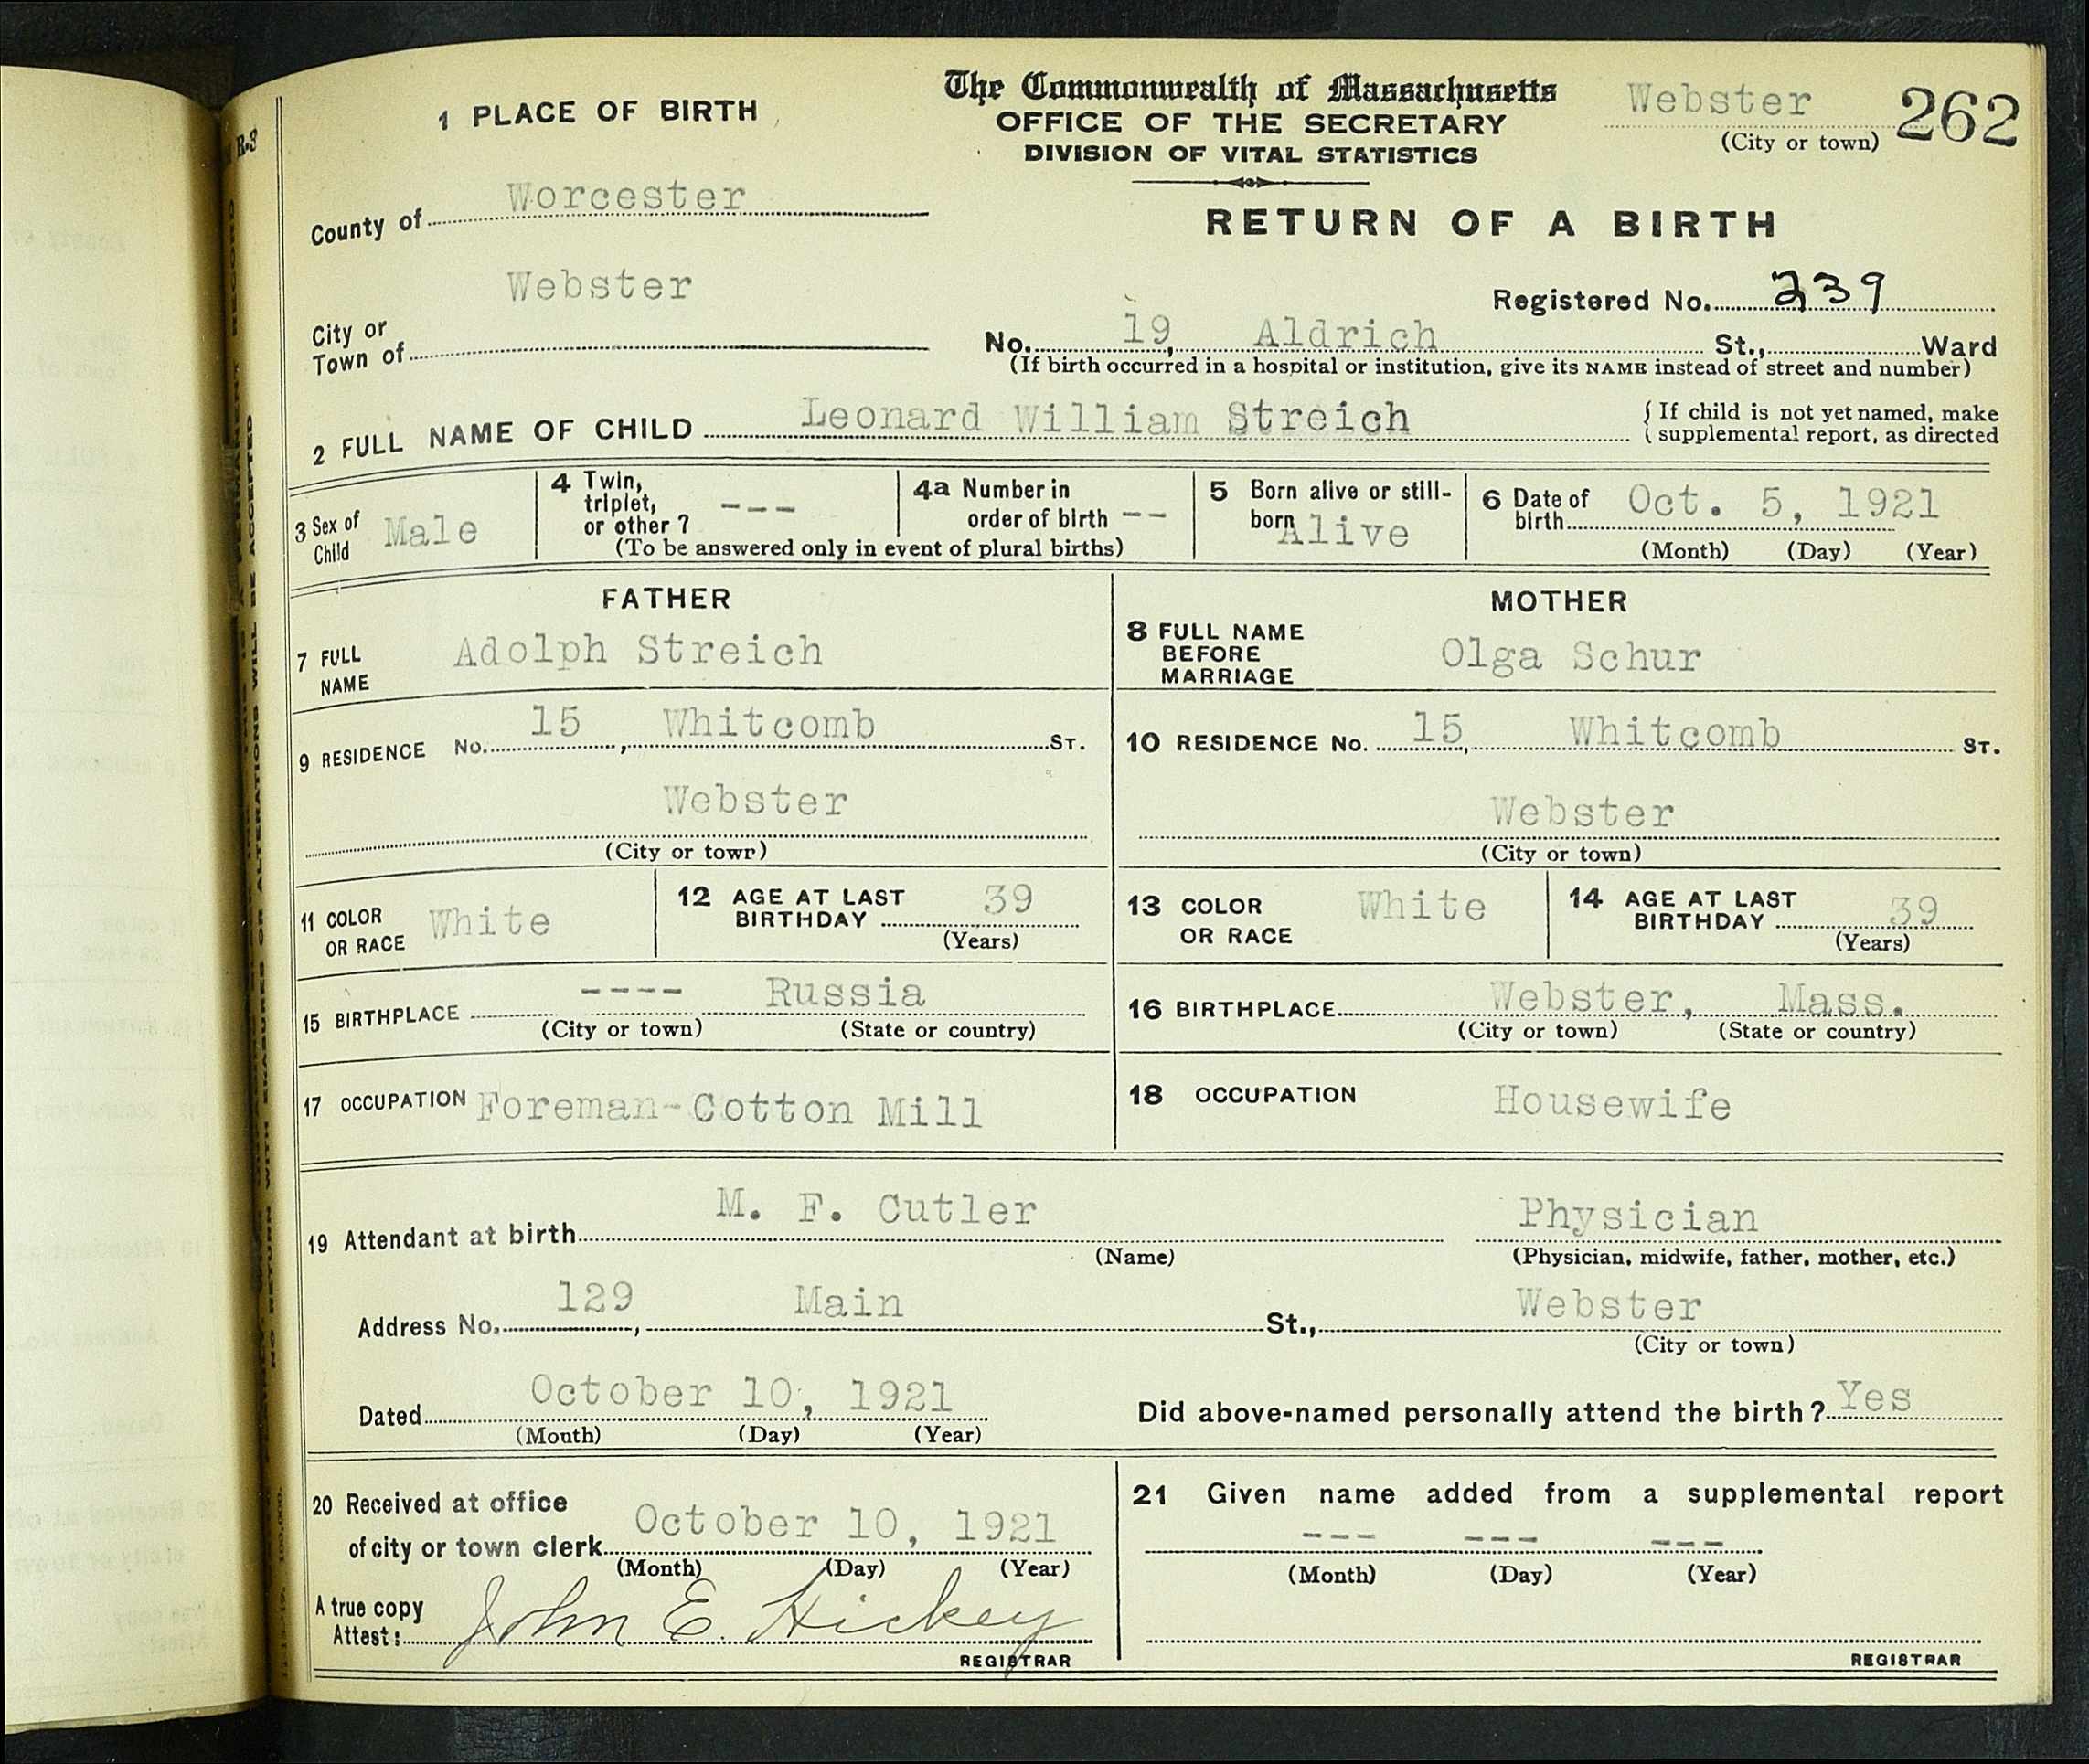 The Commonwealth of Massachusetts
OFFICE OF THE SECRETARY
DIVISION OF VITAL STATISTICS
Webster 262
(City or town)
1 PLACE OF BIRTH
RETURN OF A BIRTH
County of Worcester
Registered No. 239
City or Town of Webster
No. 19, Aldrich St., Ward
(If birth occurred in a hospital or institution, give its NAME instead of street and number)
2 FULL NAME OF CHILD Leonard William Streich
{ If child is not yet named, make
supplemental report, as directed
3 Sex of Child Male
4 Twin, triplet, or other? ---
4a Number in order of birth --
(To be answered only in event of plural births)
5 Born alive or still-born Alive
6 Date of birth Oct. 5, 1921
(Month) (Day) (Year)
FATHER
7 FULL NAME Adolph Streich
MOTHER
8 FULL NAME BEFORE MARRIAGE Olga Schur
9 RESIDENCE No. 15, Whitcomb ST.
Webster
(City or town)
10 RESIDENCE No. 15, Whitcomb ST.
Webster
(City or town)
11 COLOR OR RACE White
12 AGE AT LAST BIRTHDAY 39
(Years)
13 COLOR OR RACE White
14 AGE AT LAST BIRTHDAY 39
(Years)
15 BIRTHPLACE ---- Russia
(City or town) (State or country)
16 BIRTHPLACE Webster, Mass.
(City or town) (State or country)
17 OCCUPATION Foreman-Cotton Mill
18 OCCUPATION Housewife
19 Attendant at birth M. F. Cutler Physician
(Name) (Physician, midwife, father, mother, etc.)
Address No. 129, Main St., Webster
(City or town)
Dated October 10, 1921
(Month) (Day) (Year)
Did above-named personally attend the birth? Yes
20 Received at office
of city or town clerk October 10, 1921
(Month) (Day) (Year)
A true copy
Attest: John E. Hickey
REGISTRAR
21 Given name added from a supplemental report
--- --- ---
(Month) (Day) (Year)
REGISTRAR